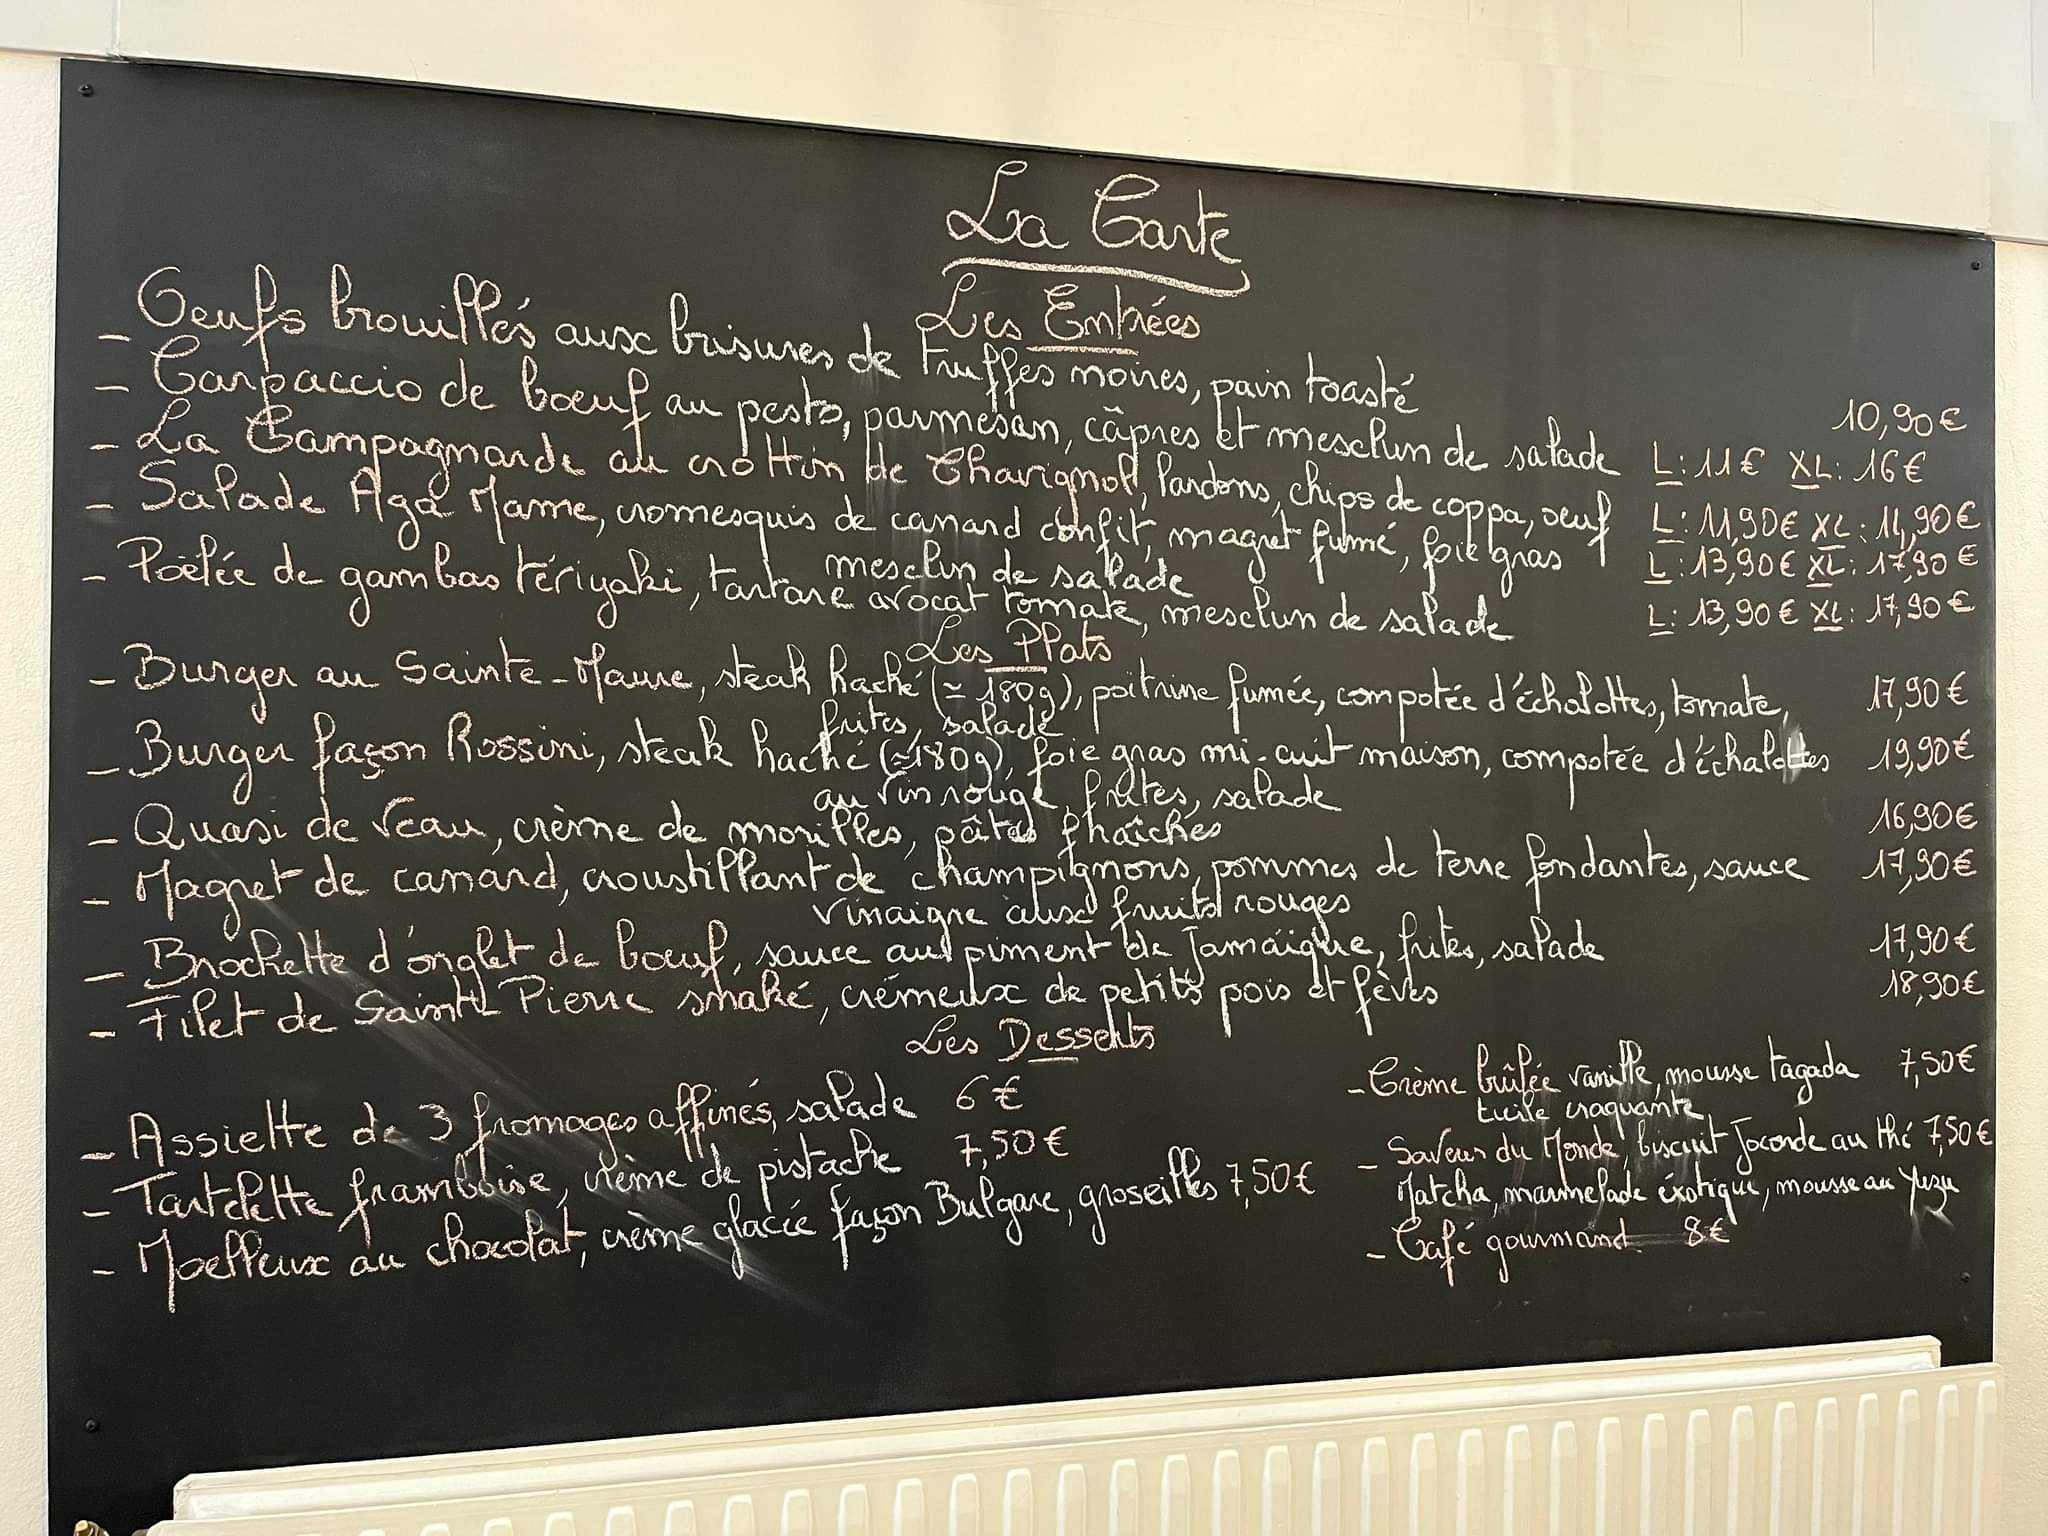 La Carte
Les Entrées
- Oeufs brouillés aux brisures de truffes noires, pain toasté 10,90€
- Carpaccio de boeuf au pesto, parmesan, câpres et mesclun de salade L: 11€ XL: 16€
- La Campagnarde au crottin de Chavignol, lardons, chips de coppa, oeuf L: 11,90€ XL: 14,90€
- Salade Aga Mame, cromesquis de canard confit, magret fumé, foie gras L: 13,90€ XL: 17,90€
mesclun de salade
- Poêlée de gambas tériyaki, tartare avocat tomate, mesclun de salade L: 13,90€ XL: 17,90€
Les Plats
- Burger au Sainte-Maure, steak haché (≃180g), poitrine fumée, compotée d'échalottes, tomate, 17,90€
frites, salade
- Burger façon Rossini, steak haché (≃180g), foie gras mi-cuit maison, compotée d'échalottes 19,90€
au vin rouge, frites, salade
- Quasi de veau, crème de morilles, pâtes fraîches 16,90€
- Magret de canard, croustillant de champignons, pommes de terre fondantes, sauce 17,90€
vinaigre aux fruits rouges
- Brochette d'onglet de boeuf, sauce au piment de Jamaïque, frites, salade 17,90€
- Filet de Saint Pierre snaké, crémeux de petits pois et fèves 18,90€
Les Desserts
- Assiette de 3 fromages affinés, salade 6€
- Tartelette framboise, crème de pistache 7,50€
- Moelleux au chocolat, crème glacée façon Bulgare, groseilles 7,50€
- Crème brûlée vanille, mousse tagada 7,50€
tuile craquante
- Saveur du Monde, biscuit Joconde au thé 7,50€
Matcha, marmelade exotique, mousse au Yuzu
- Café gourmand 8€